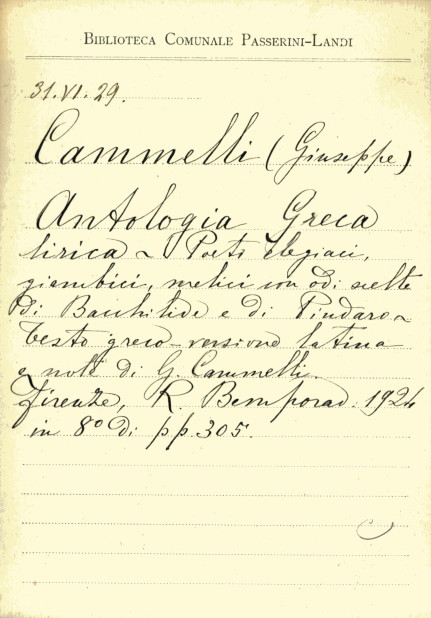 BIBLIOTECA COMUNALE PASSERINI-LANDI
31.VI.29.
Cammelli (Giuseppe)
Antologia Greca
lirica ~ Poeti elegiaci,
giambici, melici con odi scelte
di Bacchilide e di Pindaro ~
testo greco - versione latina
e note di G. Cammelli.
Firenze, R. Bemporad. 1924
in 8° di pp. 305.